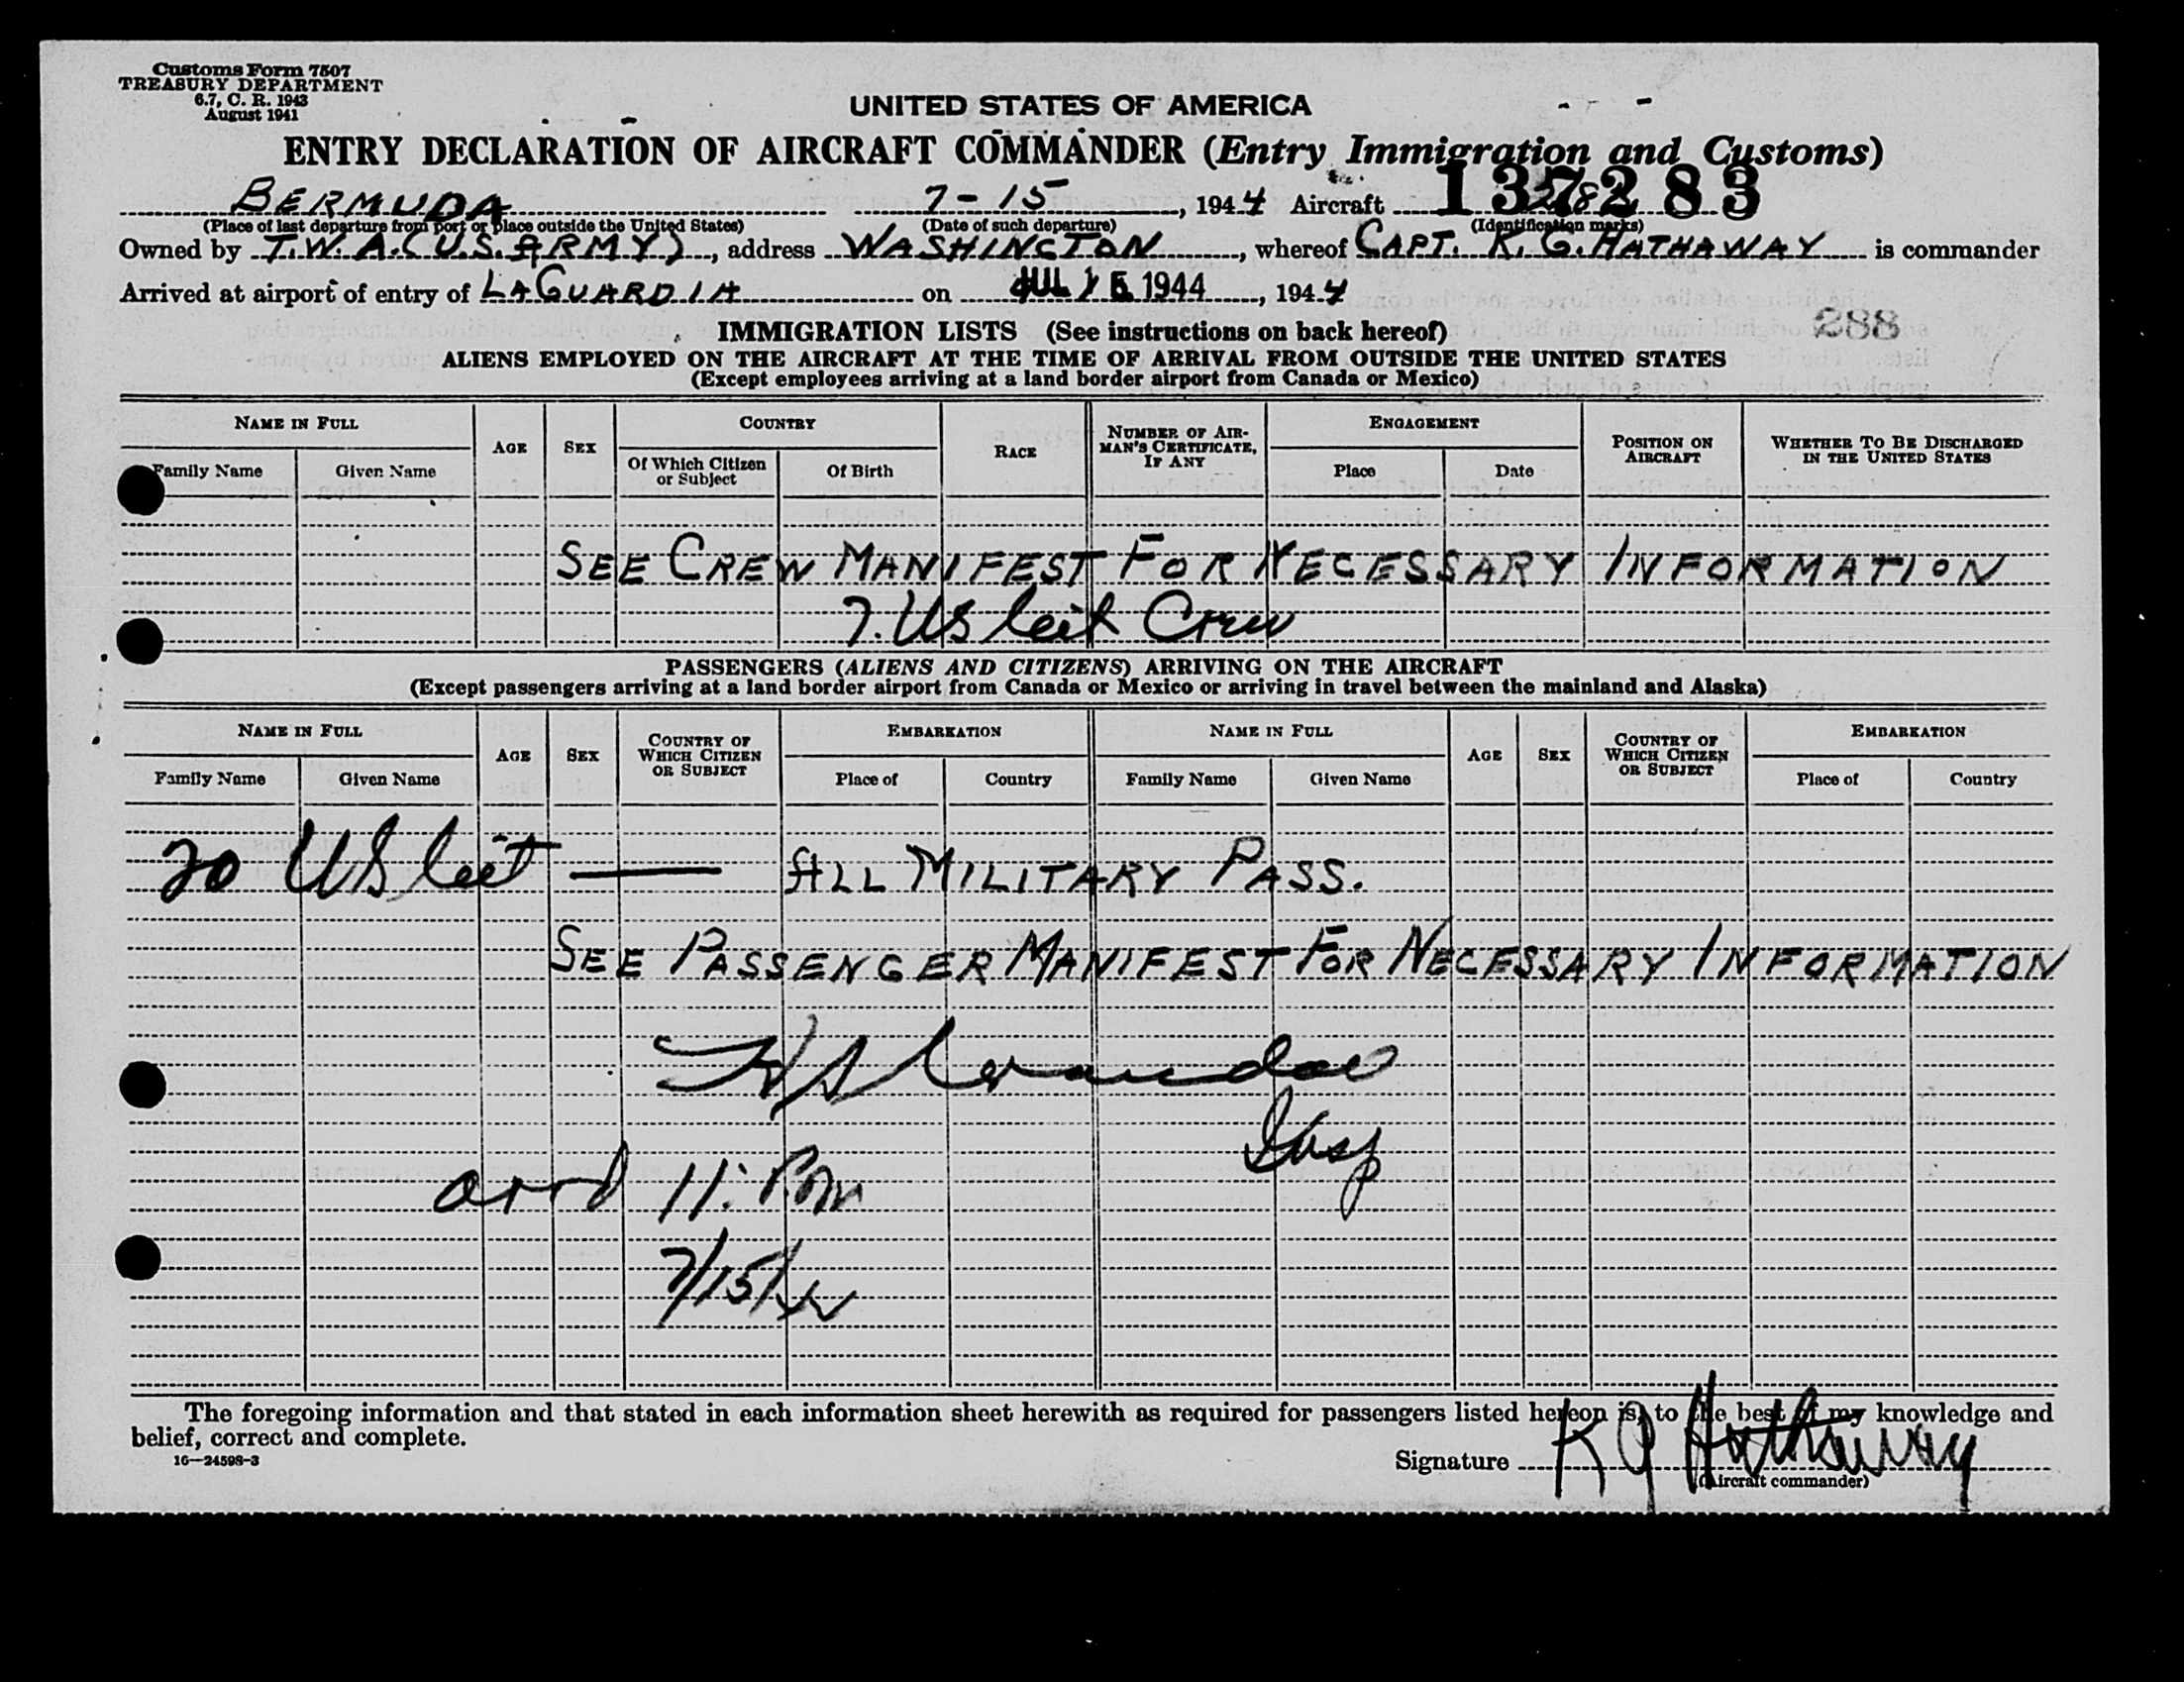 Customs Form 7507
TREASURY DEPARTMENT
6.7, C. R. 1943
August 1941
UNITED STATES OF AMERICA
ENTRY DECLARATION OF AIRCRAFT COMMANDER (Entry Immigration and Customs)
137283
BERMUDA 7-15, 1944 Aircraft
(Place of last departure from port or place outside the United States) (Date of such departure) (Identification marks)
Owned by T.W.A. (U.S. ARMY), address WASHINGTON, whereof CAPT. K. G. HATHAWAY is commander
Arrived at airport of entry of LAGUARDIA on JUL 15 1944, 1944
288
IMMIGRATION LISTS (See instructions on back hereof)
ALIENS EMPLOYED ON THE AIRCRAFT AT THE TIME OF ARRIVAL FROM OUTSIDE THE UNITED STATES
(Except employees arriving at a land border airport from Canada or Mexico)
NAME IN FULL AGE SEX COUNTRY RACE NUMBER OF AIRMAN'S CERTIFICATE, IF ANY ENGAGEMENT POSITION ON AIRCRAFT WHETHER TO BE DISCHARGED IN THE UNITED STATES
Family Name Given Name Of Which Citizen or Subject Of Birth Place Date
SEE CREW MANIFEST FOR NECESSARY INFORMATION
7. US Crew
PASSENGERS (ALIENS AND CITIZENS) ARRIVING ON THE AIRCRAFT
(Except passengers arriving at a land border airport from Canada or Mexico or arriving in travel between the mainland and Alaska)
NAME IN FULL AGE SEX COUNTRY OF WHICH CITIZEN OR SUBJECT EMBARKATION NAME IN FULL AGE SEX COUNTRY OF WHICH CITIZEN OR SUBJECT EMBARKATION
Family Name Given Name Place of Country Family Name Given Name Place of Country
20 US — ALL MILITARY PASS.
SEE PASSENGER MANIFEST FOR NECESSARY INFORMATION
Insp
arrd 11: Pm
7/15/44
The foregoing information and that stated in each information sheet herewith as required for passengers listed hereon is, to the best of my knowledge and
belief, correct and complete.
16—24598-3
Signature K G Hathaway
(Aircraft commander)